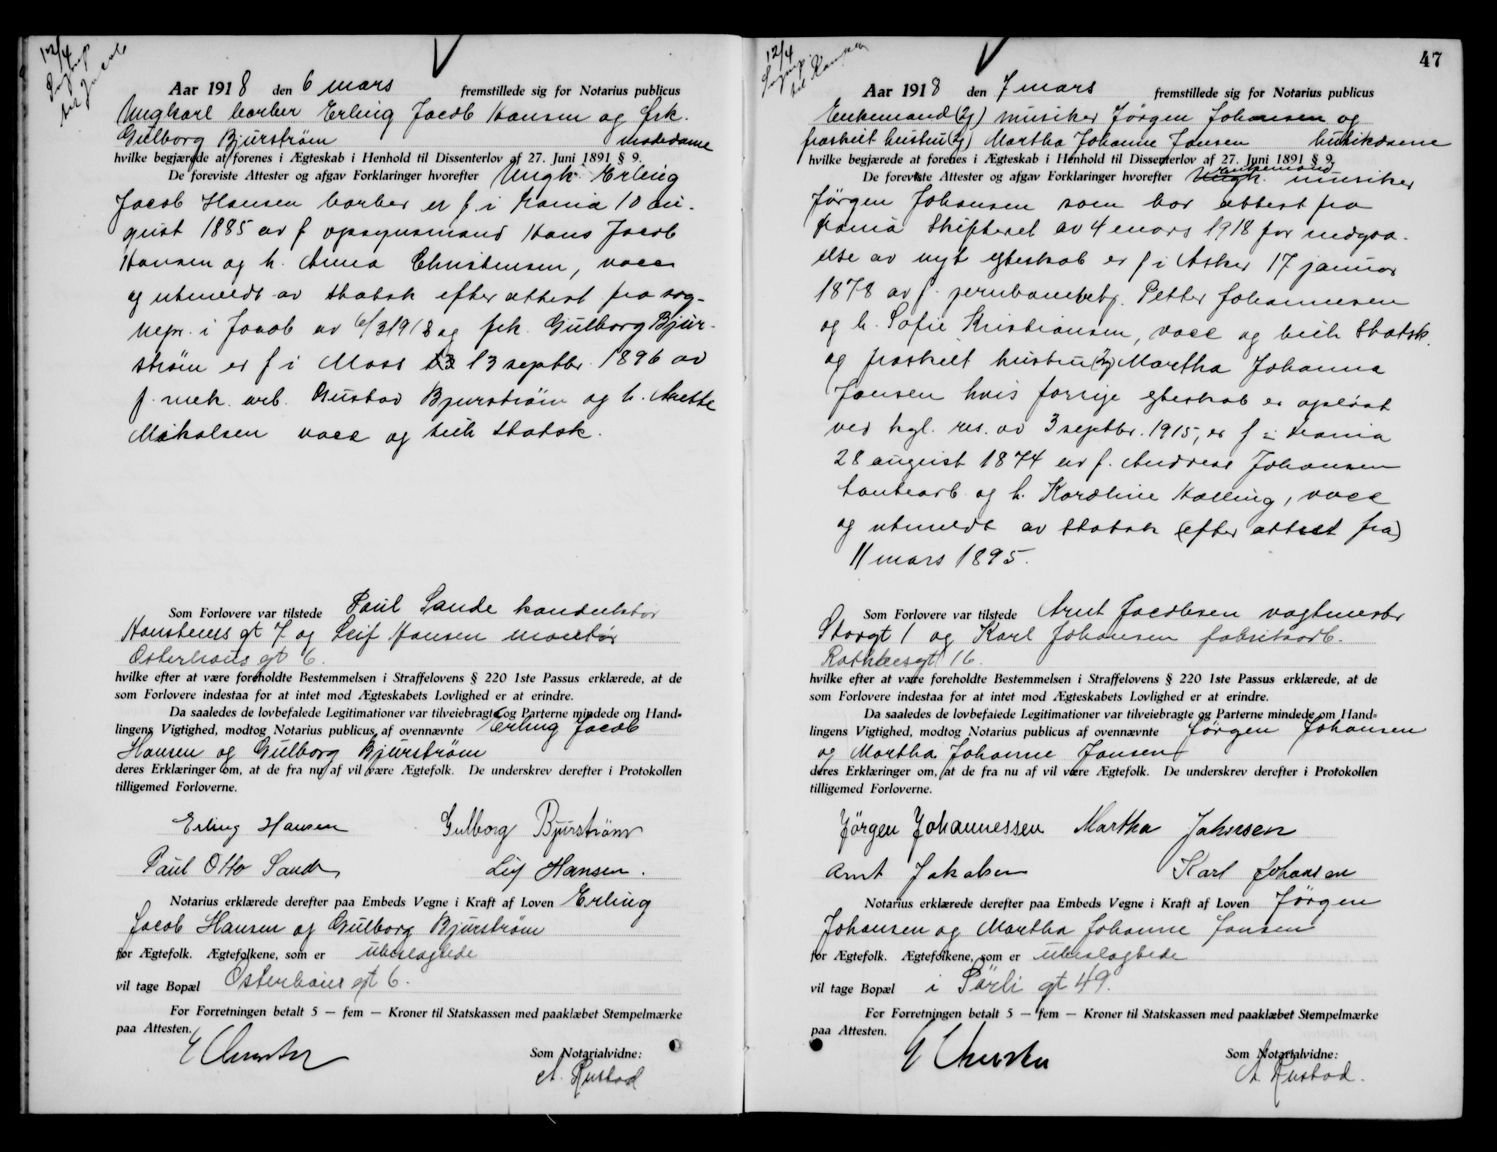 12/4
Aar 1918 den 6 mars fremstillede sig for Notarius publicus
Ungkarl barber Erling Jacob Hansen og frk.
Gulborg Bjurstrøm modedame
hvilke begjærede at forenes i Ægteskab i Henhold til Dissenterlov af 27. Juni 1891 § 9.
De foreviste Attester og afgav Forklaringer hvorefter Ungk. Erling
Jacob Hansen barber er f. i Krania 10 au-
gust 1885 av f. opsynsmand Hans Jacob
Hansen og h. Anna Christensen, vacc
og utmeldt av statsk efter attest fra sog-
nepr. i Jacob av 6/3 1918 og frk. Gulborg Bjur-
strøm er f i Moss 13 septbr. 1896 av
f. mek. arb. Gustav Bjurstrøm og h. Anette
Mikalsen vacc og tilh statsk.
Som Forlovere var tilstede Paul Sande konduktør
Hanstens gt 7 og Leif Hansen montør
Osterhaus gt 6.
hvilke efter at være foreholdte Bestemmelsen i Straffelovens § 220 1ste Passus erklærede, at de
som Forlovere indestaa for at intet mod Ægteskabets Lovlighed er at erindre.
Da saaledes de lovbefalede Legitimationer var tilveiebragte og Parterne mindede om Hand-
lingens Vigtighed, modtog Notarius publicus af ovennævnte Erling Jacob
Hansen og Gulborg Bjurstrøm
deres Erklæringer om, at de fra nu af vil være Ægtefolk. De underskrev derefter i Protokollen
tilligemed Forloverne.
Erling Hansen Gulborg Bjurstrøm
Paul Otto Sande Leif Hansen.
Notarius erklærede derefter paa Embeds Vegne i Kraft af Loven Erling
Jacob Hansen og Gulborg Bjurstrøm
for Ægtefolk. Ægtefolkene, som er ubeslægtede
vil tage Bopæl Osterhaus gt 6.
For Forretningen betalt 5 — fem — Kroner til Statskassen med paaklæbet Stempelmærke
paa Attesten.
Som Notarialvidne:
A. Rustad
12/4
47
Aar 1918 den 7 mars fremstillede sig for Notarius publicus
Enkemand (2g) musiker Jørgen Johansen og
fraskilt hustru (2g) Martha Johanne Jansen butikdame
hvilke begjærede at forenes i Ægteskab i Henhold til Dissenterlov af 27. Juni 1891 § 9.
De foreviste Attester og afgav Forklaringer hvorefter Ungk. enkemand musiker
Jørgen Johansen som har attest fra
Krania Skifteret av 4 mars 1918 for indgaa-
else av nyt egteskab er f i Asker 17 januar
1878 av f. jernbanebetj. Petter Johannesen
og h. Sofie Kristiansen, vacc og tilh Statsk.
og fraskilt hustru (2g) Martha Johanna
Jansen hvis forrige egteskab er opløst
ved kgl. res. av 3 septbr. 1915, er f i Krania
28 august 1874 av f. Andreas Johansen
tomtearb og h. Karoline Hælling, vacc
og utmeldt av statsk (efter attest fra)
11 mars 1895.
Som Forlovere var tilstede Arnt Jacobsen vagtmester
Storgt 1 og Karl Johansen fabrikarb.
Rathkesgt 16.
hvilke efter at være foreholdte Bestemmelsen i Straffelovens § 220 1ste Passus erklærede, at de
som Forlovere indestaa for at intet mod Ægteskabets Lovlighed er at erindre.
Da saaledes de lovbefalede Legitimationer var tilveiebragte og Parterne mindede om Hand-
lingens Vigtighed, modtog Notarius publicus af ovennævnte Jørgen Johansen
og Martha Johanne Jansen
deres Erklæringer om, at de fra nu af vil være Ægtefolk. De underskrev derefter i Protokollen
tilligemed Forloverne.
Jørgen Johannessen Martha Johnsen
Arnt Jakobsen Karl Johansen
Notarius erklærede derefter paa Embeds Vegne i Kraft af Loven Jørgen
Johansen og Martha Johanne Jansen
for Ægtefolk. Ægtefolkene, som er ubeslægtede
vil tage Bopæl i Sørli gt 49.
For Forretningen betalt 5 — fem — Kroner til Statskassen med paaklæbet Stempelmærke
paa Attesten.
Som Notarialvidne:
A. Rustad.